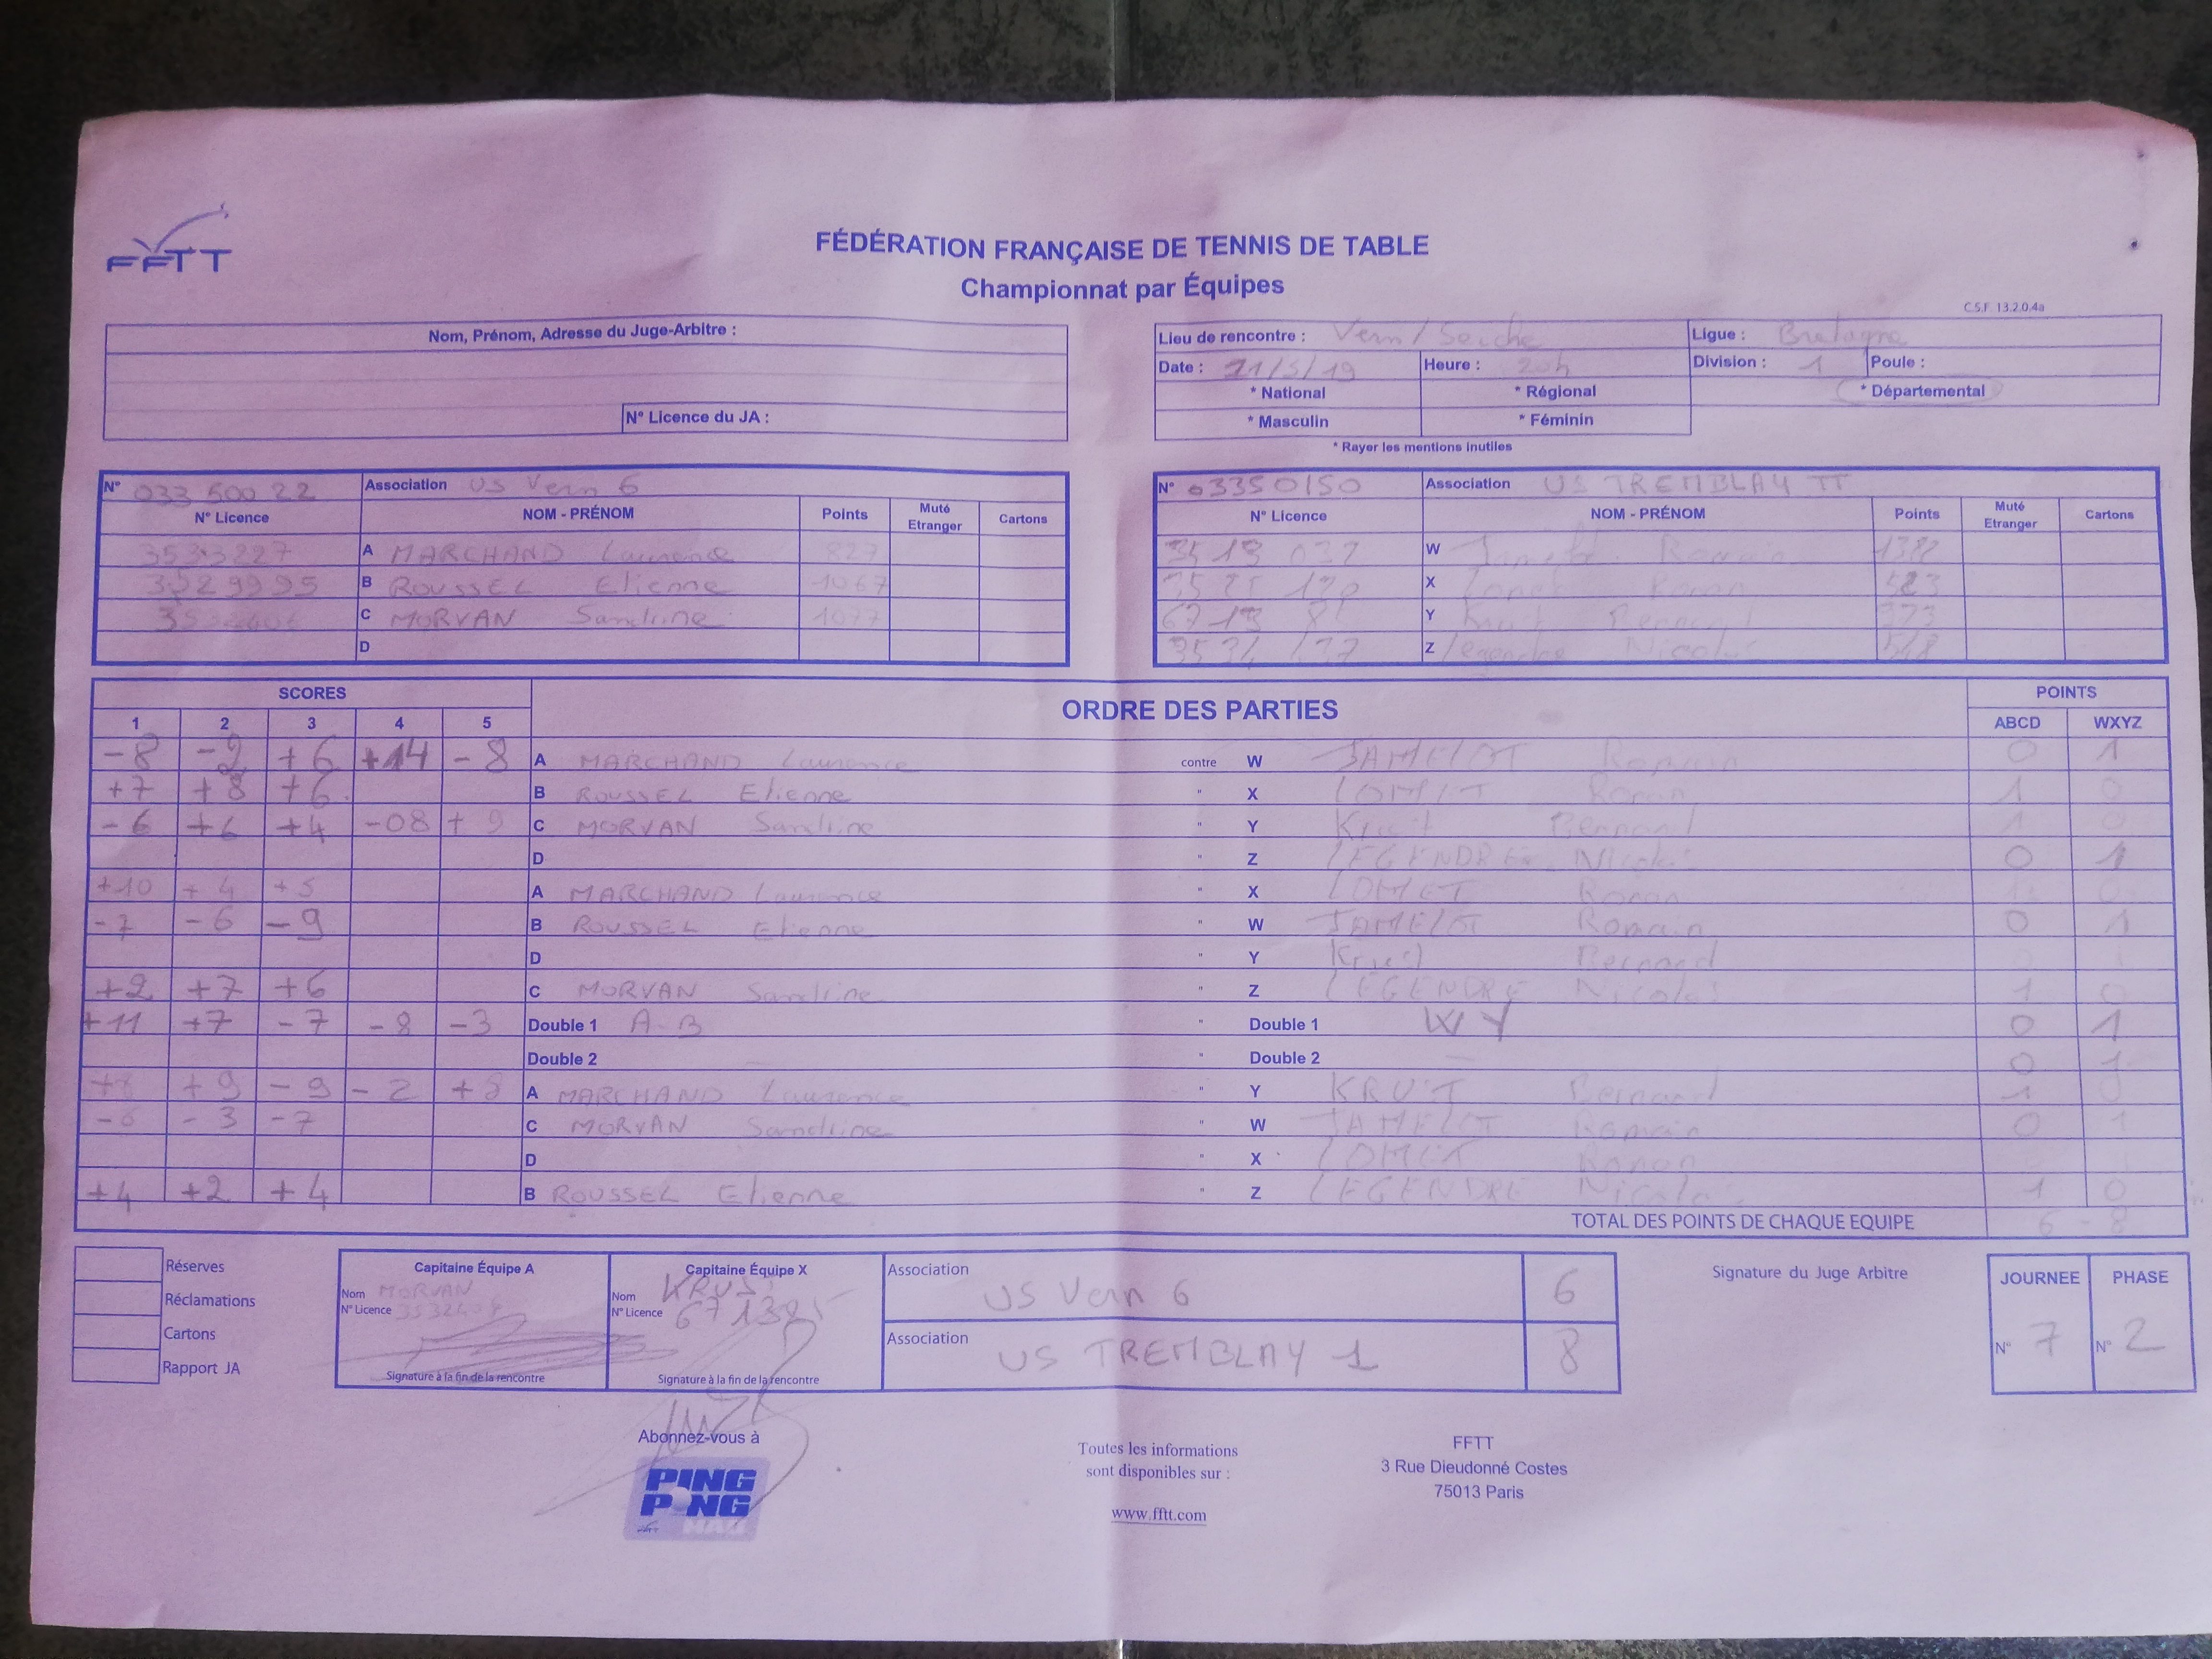 FFTT
FÉDÉRATION FRANÇAISE DE TENNIS DE TABLE
Championnat par Équipes
C.S.F. 13.2.0.4a
Nom, Prénom, Adresse du Juge-Arbitre :
N° Licence du JA :
Lieu de rencontre : Vern/Seiche Ligue : Bretagne
Date : 21/5/19 Heure : 20h Division : 1 Poule :
* National * Régional * Départemental
* Masculin * Féminin
* Rayer les mentions inutiles
N° 033 500 22 Association US Vern 6
N° Licence NOM - PRÉNOM Points Muté Etranger Cartons
3533227 A MARCHAND Laurence 827
3529995 B ROUSSEL Etienne 1067
C MORVAN Sandrine 1077
D
N° 03350150 Association US TREMBLAY TT
N° Licence NOM - PRÉNOM Points Muté Etranger Cartons
W Romain
X Ronan
Y Bernard
Z Legendre Nicolas
SCORES ORDRE DES PARTIES POINTS
1 2 3 4 5 ABCD WXYZ
-8 -2 +6 +14 -8 A MARCHAND Laurence contre W JAMELOT Romain 0 1
+7 +8 +6 B ROUSSEL Etienne " X LOMET Ronan 1 0
-6 +6 +4 -08 +9 C MORVAN Sandrine " Y Bernard 1 0
D " Z LEGENDRE Nicolas 0 1
+10 +4 +5 A MARCHAND Laurence " X LOMET Ronan 1 0
-7 -6 -9 B ROUSSEL Etienne " W JAMELOT Romain 0 1
D " Y Bernard
+2 +7 +6 C MORVAN Sandrine " Z LEGENDRE Nicolas 1 0
+11 +7 -7 -8 -3 Double 1 A-B " Double 1 W Y 0 1
Double 2 " Double 2 0 1
+9 -9 -2 +8 A MARCHAND Laurence " Y KRUT Bernard 1 0
-6 -3 -7 C MORVAN Sandrine " W JAMELOT Romain 0 1
D " X LOMET Ronan
+4 +2 +4 B ROUSSEL Etienne " Z LEGENDRE Nicolas 1 0
TOTAL DES POINTS DE CHAQUE EQUIPE 6 - 8
Réserves
Réclamations
Cartons
Rapport JA
Capitaine Équipe A
Nom MORVAN
N° Licence
Signature à la fin de la rencontre
Capitaine Équipe X
Nom
N° Licence
Signature à la fin de la rencontre
Association US Vern 6 6
Association US TREMBLAY 1 8
Signature du Juge Arbitre
JOURNEE PHASE
N° 7 N° 2
Abonnez-vous à
PING
PONG
MAG
Toutes les informations
sont disponibles sur :
www.fftt.com
FFTT
3 Rue Dieudonné Costes
75013 Paris